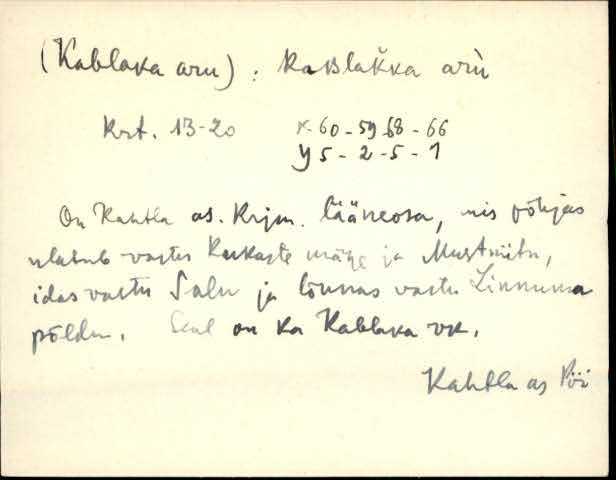 (Kablaka aru) : Kablakka arù
Krt. 13-20 x-60-59-68-66
y 5-2-5-1
On Kahtla as. Krjm. lääneosa, mis põhjas
ulatub vastu Kukaste mäge ja Mustniitu,
idas vastu Salu ja lõunas vastu Linnuma
põldu. Seal on ka Kablaka vk.
Kahtla as Pöi